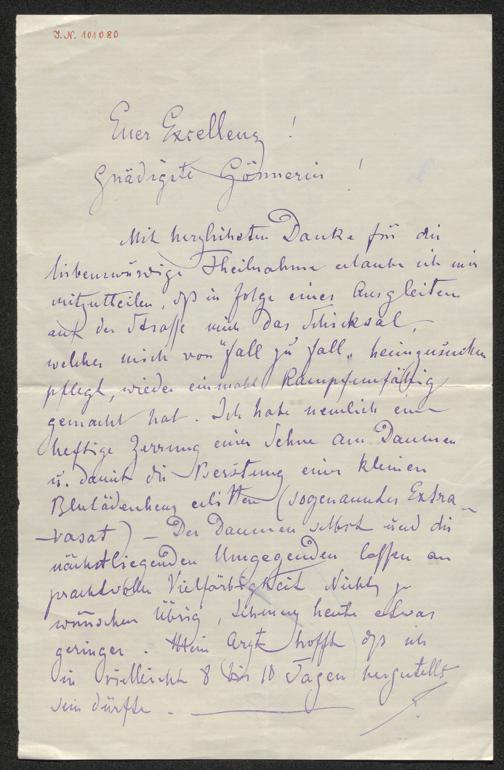 J.N. 101080
Euer Excellenz !
Gnädigste Gönnerin !
Mit herzlichsten Danke für die
liebenswürdige Theilnahme erlaube ich mir
mitzutheilen, dß in folge eines Ausgleiten
auf der Strasse mich das Schicksal,
welches mich von "Fall zu Fall" heimzusuchen
pflegt, wieder einmahl Kampfunfähig
gemacht hat. Ich habe nemlich eine
heftige Zerrung einer Sehne am Daumen
u. damit die Berstung eines kleinen
Blutäderchens erlitten (sogenanntes Extra-
-vasat) – Der Daumen selbst und die
nächstliegenden Umgegenden lassen an
prachtvoller Vielfärbigkeit Nichts zu
wünschen übrig, Schmerz heute etwas
geringer. Mein Arzt hofft dß ich
in vielleicht 8 bis 10 Tagen hergestellt
sein dürfte.